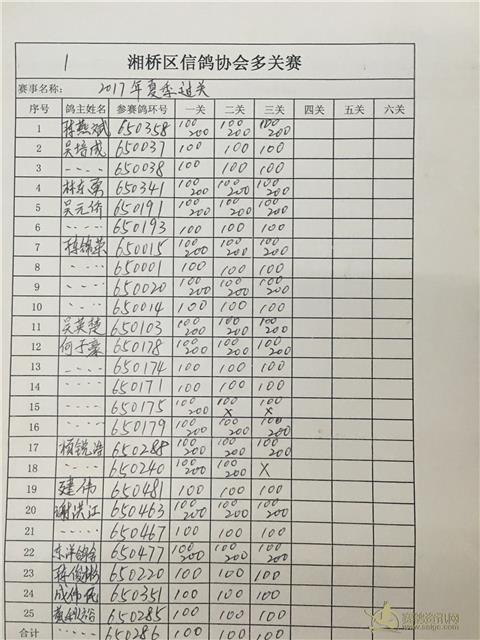 1 湘桥区信鸽协会多关赛
赛事名称: 2017年夏季过关
序号 鸽主姓名 参赛鸽环号 一关 二关 三关 四关 五关 六关
1 陈燕斌 650358 100 200 100 200 100 200
2 吴培成 650037 100 100 100
3 〃 650038 100 100 100
4 林东勇 650341 100 200 100 200 100 200
5 吴元侨 650191 100 200 100 200 100 200
6 〃 650193 100 100 100
7 陈锦荣 650015 100 200 100 200 100 200
8 〃 650001 100 100 100
9 〃 650020 100 200 100 200 100 200
10 〃 650014 100 100 100
11 吴英楚 650103 100 200 100 200 100 200
12 何子豪 650178 100 200 100 200 100 200
13 〃 650174 100 100 100
14 〃 650171 100 100 100
15 〃 650175 100 200 100 x 100 x
16 〃 650179 100 200 100 200 100 200
17 锐浩 650288 100 200 100 200 100 200
18 〃 650240 100 200 100 200 x
19 建伟 650481 100 100 100
20 谢洪江 650463 100 200 100 200 100 200
21 〃 650467 100 100 100
22 东洋鸽舍 650477 100 200 100 200 100 200
23 陈俊彬 650220 100 100 100
24 成伟 650351 100 100 100
25 650285 100 200 100 200 100 200
合计 650286 100 100 100
赛鸽资讯网
www.saige.com